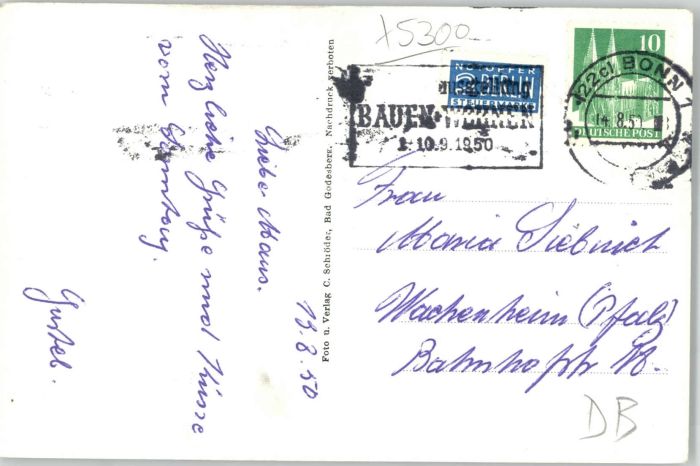 x5300
10
DEUTSCHE POST
(22c) BONN 1
14.8.50
NOTOPFER
2 BERLIN
STEUERMARKE
ausstellung
BAUEN+WOHNEN
1-10.9.1950
Liebe Maus.
Herzliche Grüße und Küsse
vom
Gustel.
13.8.50
Foto u. Verlag C. Schröder, Bad Godesberg, Nachdruck verboten
Frau
Maria Siebrich
Wachenheim (Pfalz)
Bahnhofstr
DB